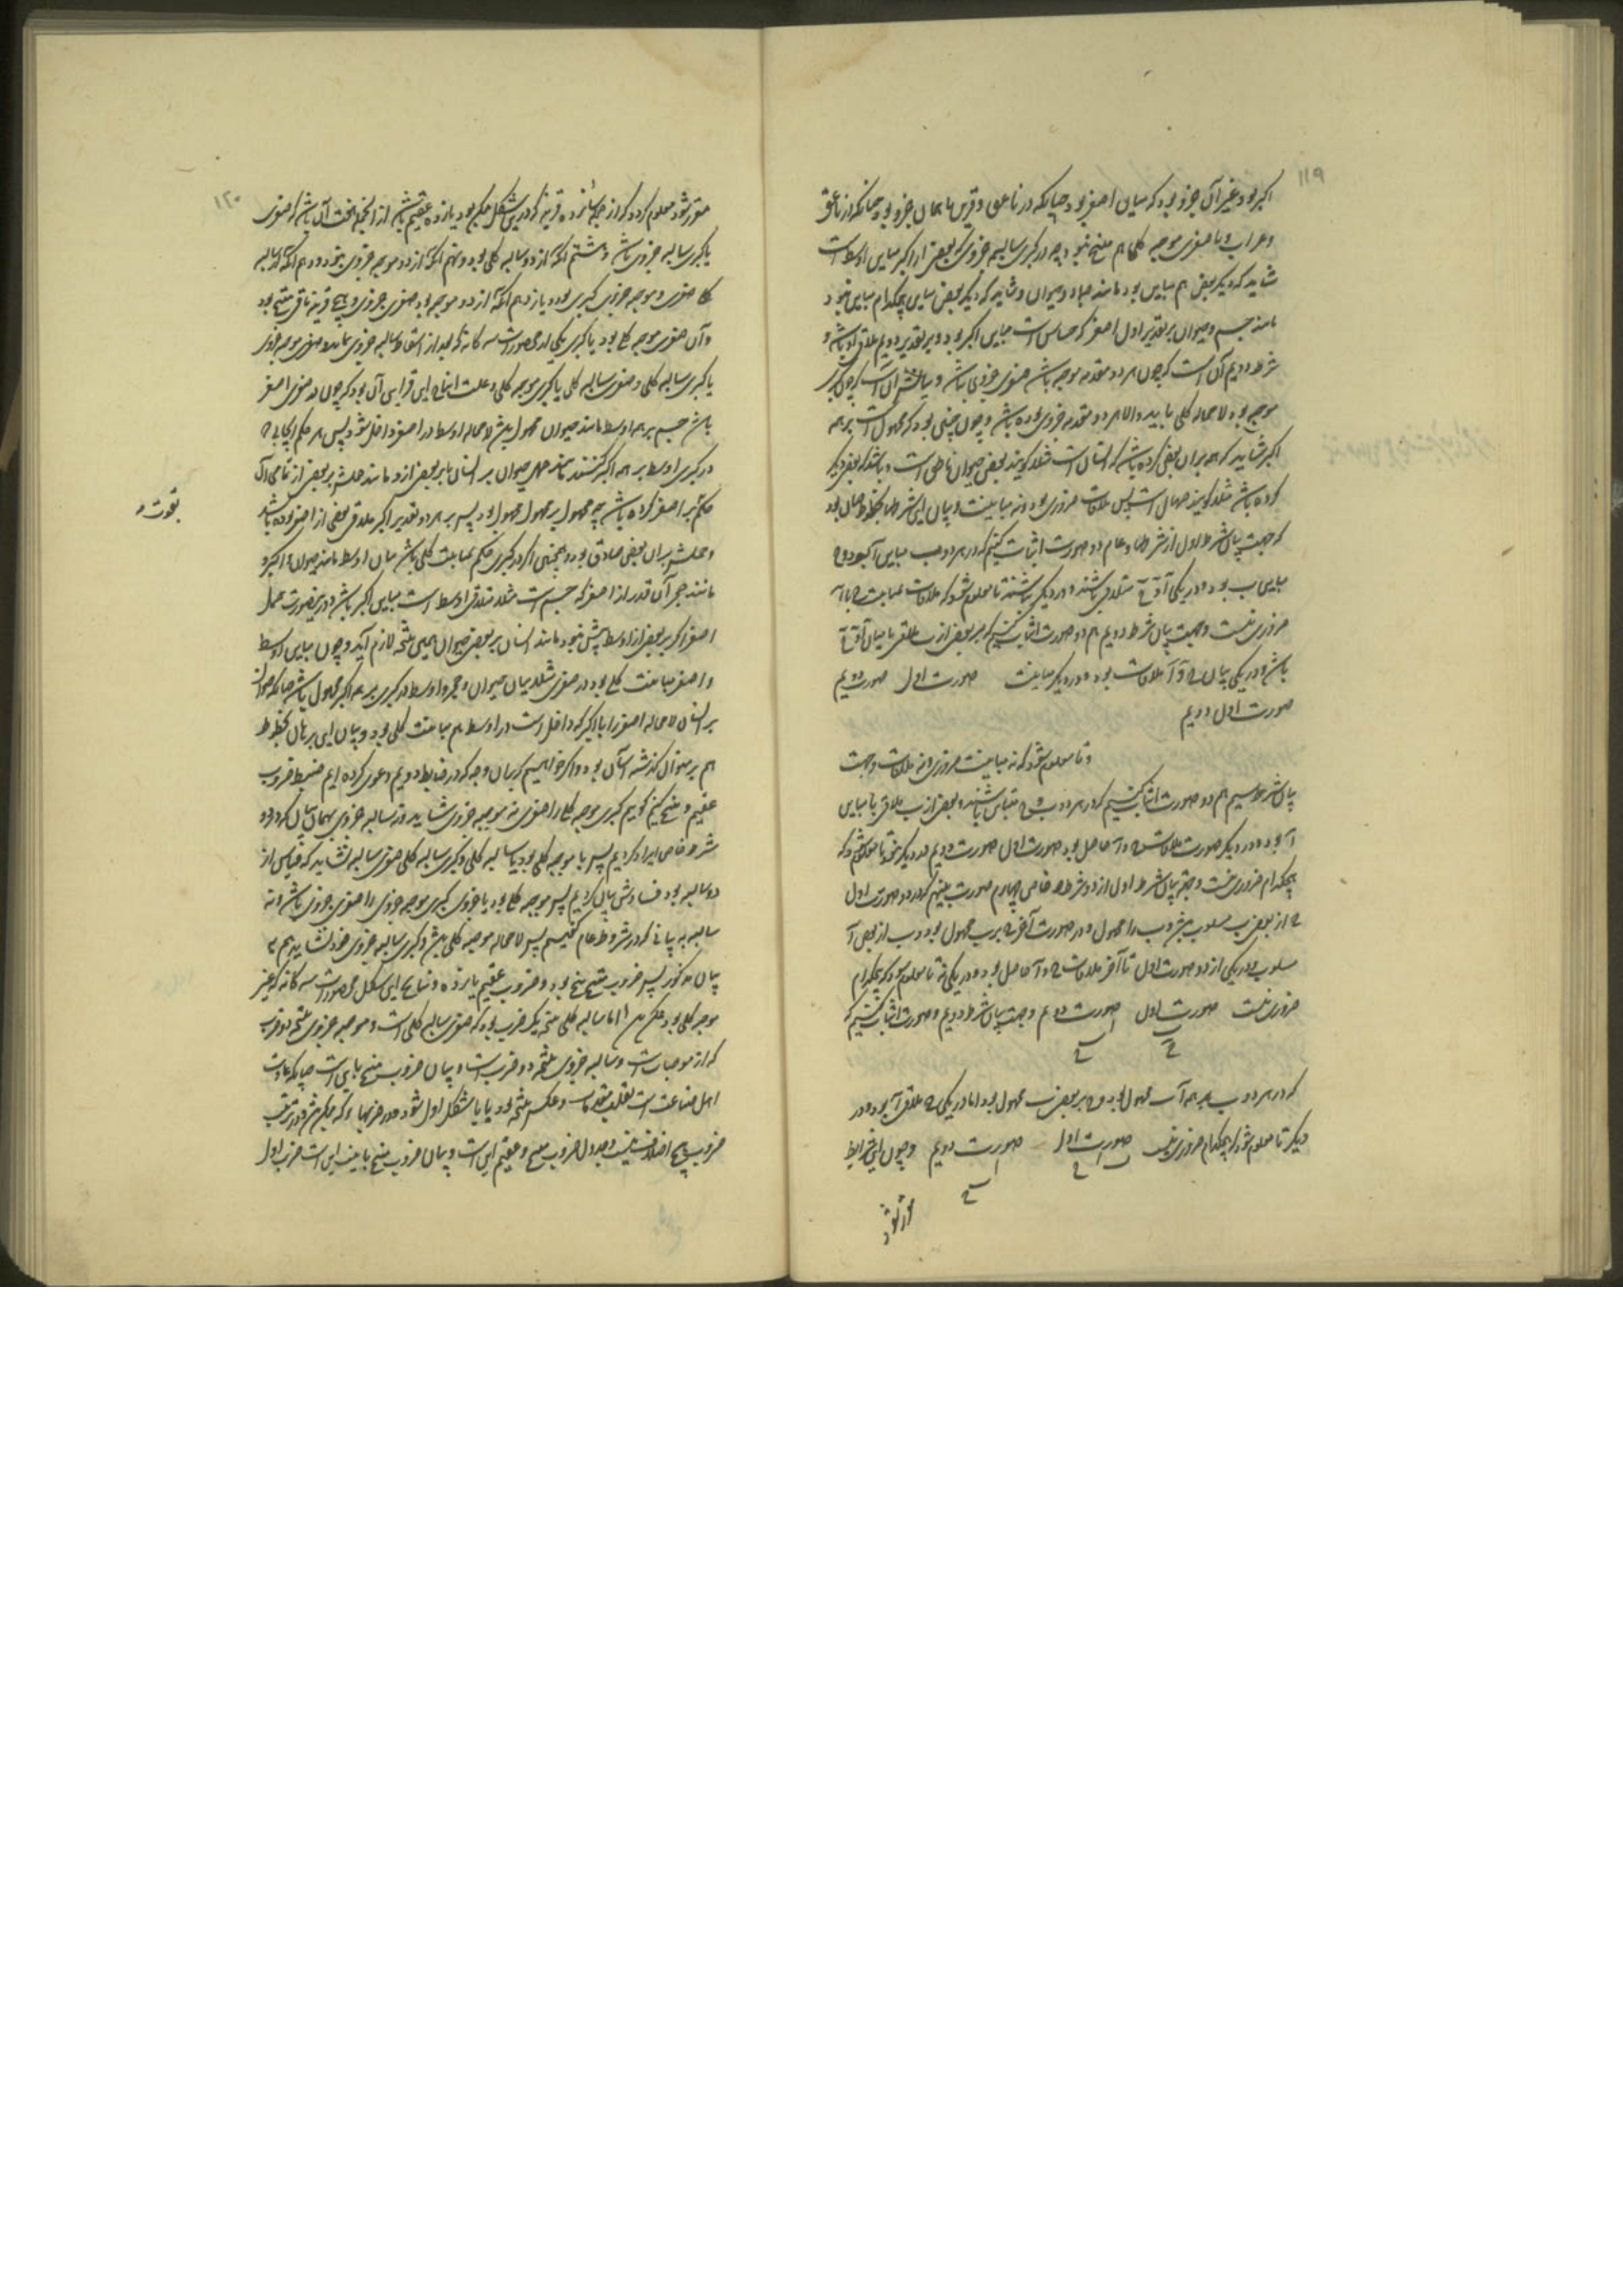 ۱۱۹
اکبر بود و غیر آن جزو بود که میان اصغر بود چنانکه در ناعق و فرس یا همان جزو بود چنانکه در ناعق
و غراب و با صغری موجبه کلی هم منتج نبود چه در کبری سالبه جزوی که بعضی از اکبر مباین اوسط است
شاید که دیگر بعض هم مباین بود مانند جماد و حیوان و شاید که دیگر بعض مباین هیچکدام مباین نبود
مانند جسم و حیوان بر تقدیر اول اصغر که حساس است مباین اکبر بود و بر تقدیر دویم ملاقی او باشد و
شرط دویم آن است که چون هر دو مقدمه موجبه باشد صغری جزوی باشد و بیانش آن است که چون کبری
موجبه بود لامحاله کلی باید والا هر دو مقدمه جزوی بوده باشد و چون چنین بود که محمول است بر همه
اکبر شاید که هم بر آن بعض کرده باشد که انسان است مثلا گویند بعضی حیوان ناطق است و باشد که بعض دیگر
کرده باشد مثلا گویند صهال است پس ملاقات ضروری بود و نه مباینت و بیان این شرطها بخطوط چنان بود
که جهت بیان شرط اول از شرطهای عام دو صورت اثبات کنیم که در هر دو ب مباین آ بود و ج
مباین ب بود و در یکی آ و ج متلاقی باشند و در دیگر نباشند تا معلوم شود که ملاقات و مباینت ج با آ
ضروری نیست و جهت بیان شرط دویم هم دو صورت اثبات کنیم که بر بعض از ب ملاقی یا میان آ و ج
باشد و در یکی میان ج و آ ملاقات بود و در دیگر مباینت صورت اول صورت دویم
صورت اول دویم
و تا معلوم شود که نه مباینت ضروریست نه ملاقات و جهت
بیان شرط سیم هم دو صورت اثبات کنیم که در هر دو ب و ج متباین باشند و بعض از ب ملاقی یا مباین
آ بود و در دیگر صورت ملاقات ج و آ حاصل بود صورت اول صورت دویم و در دیگر نبود تا معلوم شود که
هیچکدام ضروری نیست و جهت بیان شرط اول از دو شرط خاص چهارم صورت بنهیم که در دو صورت اول
ج از بعض ب مسلوب باشد و ب را محمول و در صورت آخر ج بر ب محمول بود و ب از بعض آ
مسلوب و در یکی از دو صورت اول تا آخر ملاقات ج و آ حاصل بود و در یکی نه تا معلوم شود که هیچکدام
ضروری نیست صورت اول صورت دویم و جهت بیان شرط دویم دو صورت اثبات کنیم که
که در هر دو ب بر همه آ محمول بود و ج بر بعض ب محمول بود اما در یکی ج ملاقی آ بود و در
دیگر تا معلوم شود که هیچکدام ضروری نیست صورت اول صورت دویم و چون این شرایط
مقرر شود
۱۲۰
مقرر شود معلوم گردد که از جمله شانزده قرینه که در این شکل ممکن بود یازده عقیم باشد از آنجمله هشت آن باشد که صغری
یا کبری سالبه جزوی باشد و هشتم آنکه از دو سالبه کلی بود و نهم آنکه از دو موجبه جزوی بود و دهم آنکه از سالبه
کلی صغری و موجبه جزوی کبری بود و یازدهم آنکه از دو موجبه بود صغری جزوی و پنج قرینه باقی منتج بود
و آن صغری موجبه کلی بود با کبری یکی از محصورات سه گانه که بعد از اسقاط سالبه جزوی بماند و صغری موجبه جزوی
با کبری سالبه کلی و صغری سالبه کلی با کبری موجبه کلی و علت انتاج این قراین آن بود که چون در صغری اصغر
باشد جسم بر همه اوسط مانند حیوان محمول باشد لامحاله اوسط در اصغر داخل شود پس هر حکم ایجابی که
در کبری اوسط بر همه اکبر کنند مانند حمل حیوان بر انسان یا بر بعضی ازو مانند حملش بر بعض از ناطق آن
حکم بر اصغر کرده باشد چه محمول بر محمول محمول بود پس بر هر دو تقدیر اکبر ملاقی بعضی از اصغر بوده باشد
بقوت
و حملش بر آن بعض صادق بود و همچنین اگر در کبری حکم بمباینت کلی باشد میان اوسط مانند حیوان و اکبر
مانند حجر آن قدر از اصغر که جسم است مثلا ملاقی اوسط است مباین اکبر باشد و در این صورت حمل
اصغر اگر بر بعض از اوسط بیش نبود مانند انسان بر بعض حیوان همین نتیجه لازم آید و چون میان اوسط
و اصغر مباینت کلی بود در صغری مثلا میان حیوان و حجر و اوسط در کبری بر همه اکبر محمول باشد چنانکه حیوان
بر انسان لامحاله اصغر را با اکبر که داخل است در اوسط هم مباینت کلی بود و بیان این برهان بخطوط
هم بر منوال گذشته آسان بود و اگر خواهیم که بیان وجه که در ضابطه دویم دعوی کرده ایم ضبط ضروب
عقیم و منتج کنیم گوئیم کبری موجبه کلی را صغری نه موجبه جزوی شاید و نه سالبه جزوی بهمان بیان که در دو
شرط خاص ایراد کردیم پس یا موجبه کلی بود یا سالبه کلی و کبری سالبه کلی صغری سالبه نشاید که قیاس از
دو سالبه بود فسادش بیان کردیم پس موجبه کلی بود یا جزوی کبری موجبه جزوی را صغری جزوی باشد و نه
سالبه به بیانی که در شروط عام گفتیم پس لامحاله موجبه کلی باشد و کبری سالبه جزوی خود نشاید هم به
بیان مذکور پس ضروب منتج پنج بود و ضروب عقیم یازده و نتایج این شکل محصورات سه گانه که غیر
موجبه کلی بود ممکن باشد اما سالبه کلی نتیجه یک ضرب بود که صغری سالبه کلی است و موجبه جزوی نتیجه دو ضرب
که از موجبات است و سالبه جزوی نتیجه دو ضرب است و بیان ضروب منتج باین است چنانکه عادت
اهل صناعت است بقلب مقدمات و عکس نتیجه بود یا با شکل اول شود و در ضربها که ممکن باشد و در ترتیب
ضروب پنج اختلاف نیست و جدول ضروب منتج و عقیم این است و بیان ضروب منتج باینه این است ضرب اول